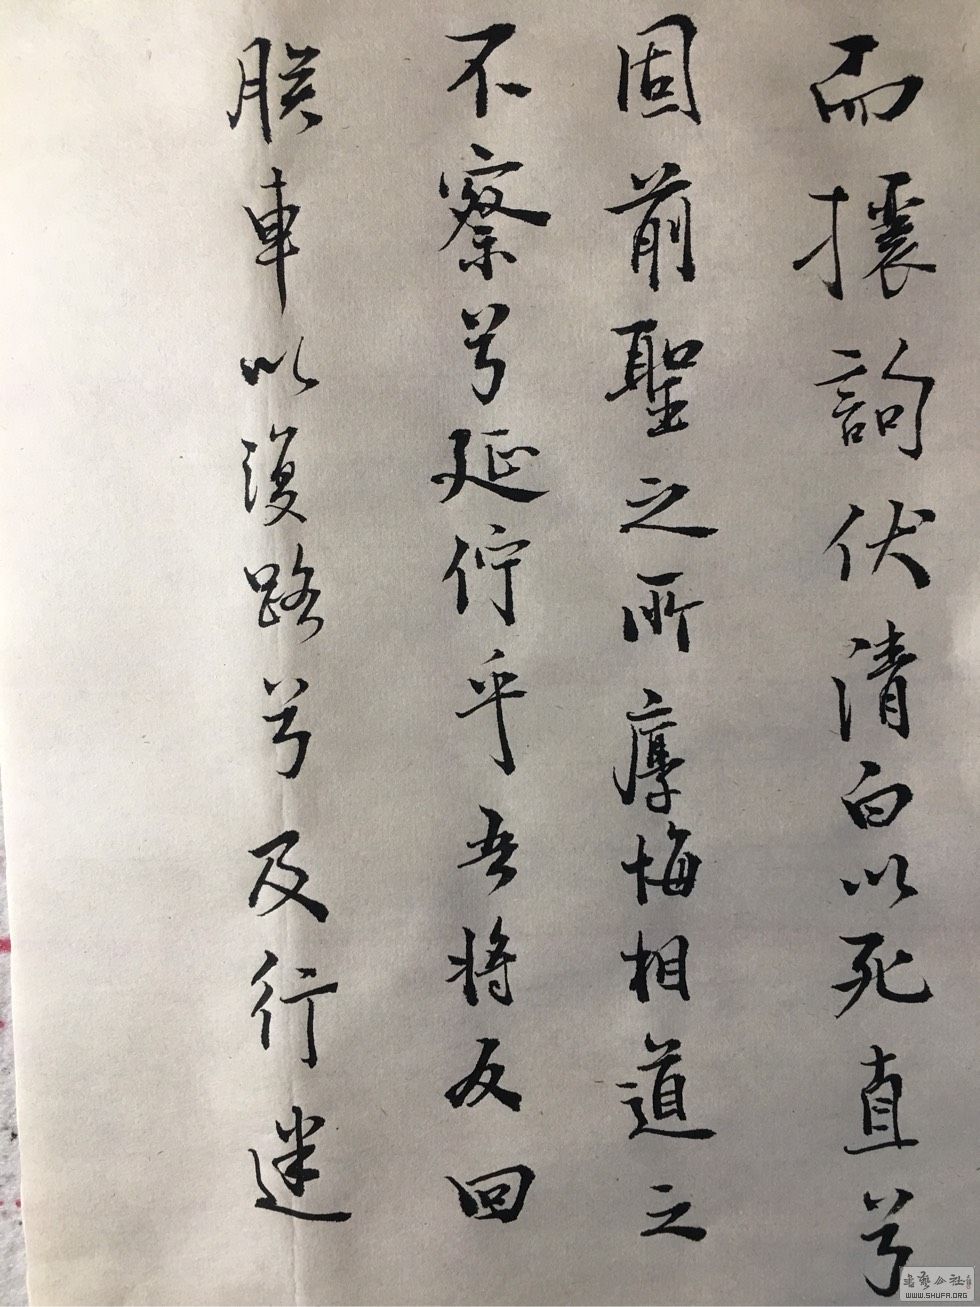 而攘訽伏清白以死直兮
固前聖之所厚悔相道之
不察兮延佇乎吾将反回
朕車以復路兮及行迷
書藝公社
WWW.SHUFA.ORG